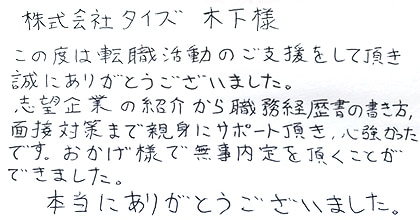 株式会社タイズ 木下様
この度は転職活動のご支援をして頂き
誠にありがとうございました。
志望企業の紹介から職務経歴書の書き方,
面接対策まで親身にサポート頂き,心強かった
です。おかげ様で無事内定を頂くことが
できました。
本当にありがとうございました。